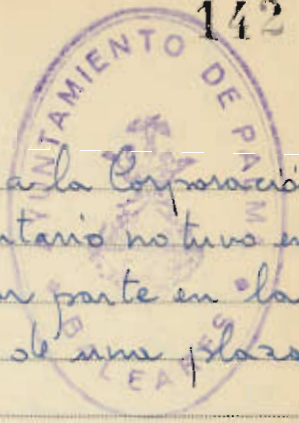 142
AYUNTAMIENTO DE PALMA
BALEARES
a la Corporació
ntario no tuvo en
parte en la
de una plaza